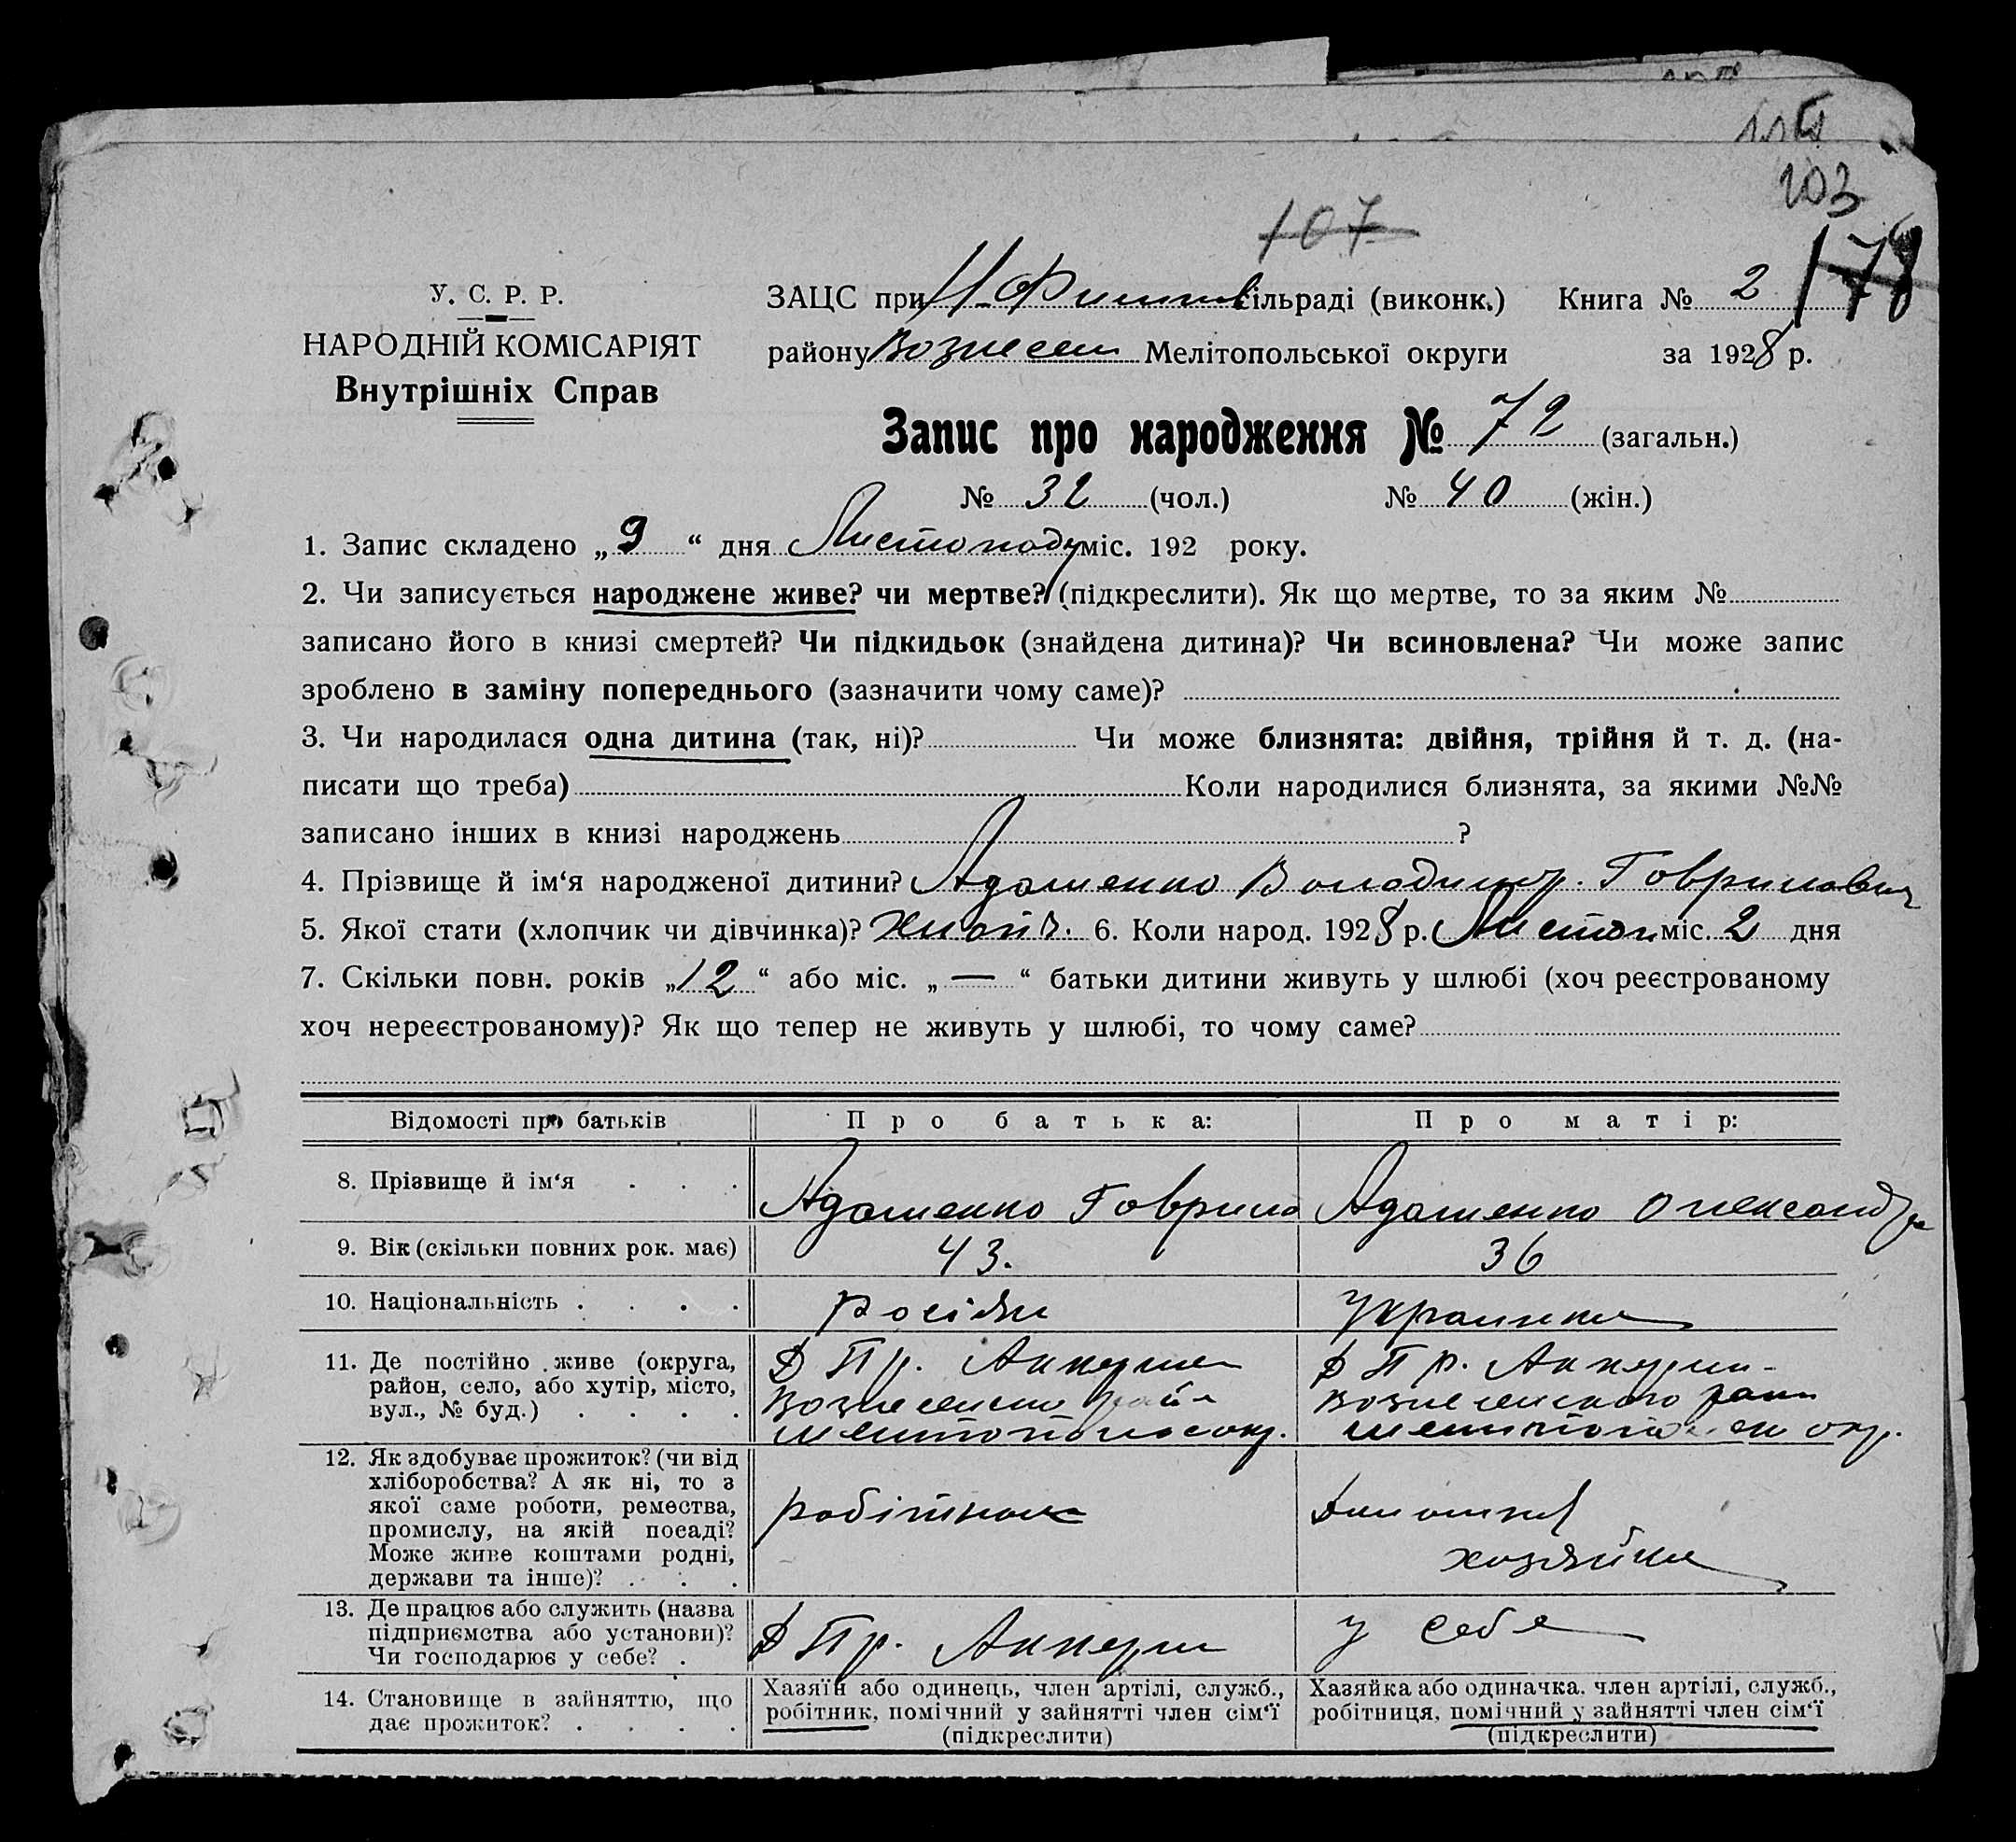 103
107
178
У. С. Р. Р.
НАРОДНІЙ КОМІСАРІЯТ
Внутрішніх Справ
ЗАЦС при сільраді (виконк.) Книга № 2
району Вознесен Мелітопольської округи за 1928 р.
Запис про народження № 72 (загальн.)
№ 32 (чол.) № 40 (жін.)
1. Запис складено „ 9 “ дня Листопаду міс. 192 року.
2. Чи записується народжене живе? чи мертве? (підкреслити). Як що мертве, то за яким №
записано його в книзі смертей? Чи підкидьок (знайдена дитина)? Чи всиновлена? Чи може запис
зроблено в заміну попереднього (зазначити чому саме)?
3. Чи народилася одна дитина (так, ні)? Чи може близнята: двійня, трійня й т. д. (на-
писати що треба) Коли народилися близнята, за якими №№
записано інших в книзі народжень ?
4. Прізвище й ім‘я народженої дитини? Адаменко Володимир. Говрилович
5. Якої стати (хлопчик чи дівчинка)? Хлопч. 6. Коли народ. 1928 р. Листоп. міс. 2 дня
7. Скільки повн. років „ 12 “ або міс. „ — “ батьки дитини живуть у шлюбі (хоч реєстрованому
хоч нереєстрованому)? Як що тепер не живуть у шлюбі, то чому саме?
Відомості про батьків Про батька: Про матір:
8. Прізвище й ім‘я . . . Адаменко Говрило Адаменко Олександра
9. Вік (скільки повних рок. має) 43. 36
10. Національність . . . . росіян украинка
11. Де постійно живе (округа, Пр. Аккерме Пр. Аккерм-
район, село, або хутір, місто, Вознесенско рай Вознесенского район
вул., № буд.) . . . . окр. окр.
12. Як здобуває прожиток? (чи від
хліборобства? А як ні, то з
якої саме роботи, ремества, робітник Домашня
промислу, на якій посаді?
Може живе коштами родні, хозяйка
держави та інше)? . . .
13. Де працює або служить (назва
підприємства або установи)? Пр. Аккерм у себе
Чи господарює у себе? .
14. Становище в зайняттю, що Хазяїн або одинець, член артілі, служб., Хазяйка або одиначка, член артілі, служб.,
дає прожиток? . . . . робітник, помічний у зайнятті член сім‘ї робітниця, помічний у зайнятті член сім‘ї
(підкреслити) (підкреслити)